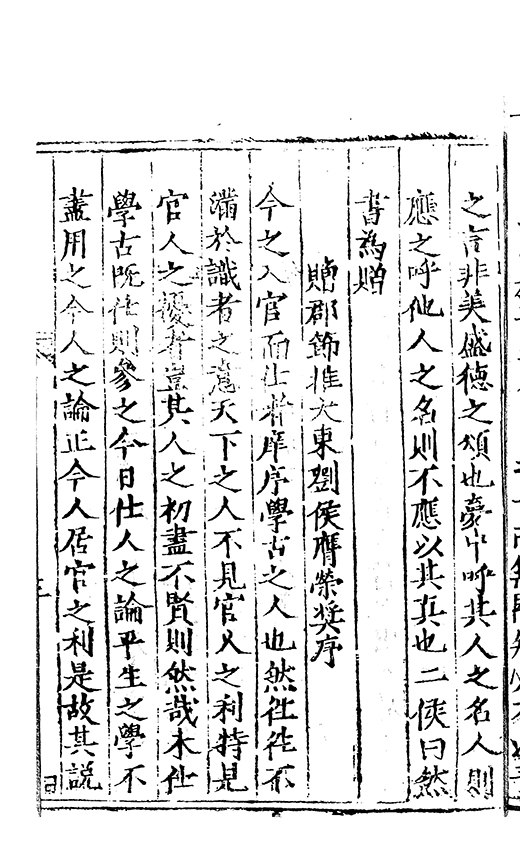 之言非美盛德之頌也夢中呼其人之名人則
應之呼他人之名則不應以其真也二侯曰然
書為贈
贈郡節推大東劉侯膺榮奬序
今之入官而仕者庠序學古之人也然徃徃不
滿於識者之意天下之人不見官人之利特見
官人之擾者豈其人之初盡不賢則然哉未仕
學古既仕則參之今日仕人之論平生之學不
盡用之今人之論正今人居官之利是故其説